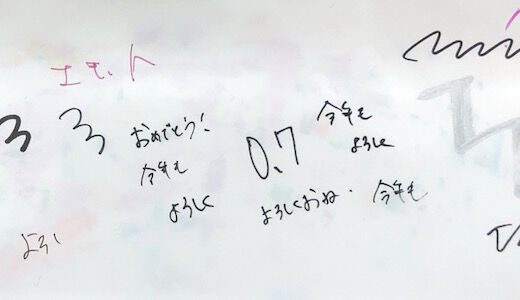 ろ ろ
おめでとう!
今年も
よろしく
0.7
今年も
よろしく
よろしくおね.
今年も
よろし